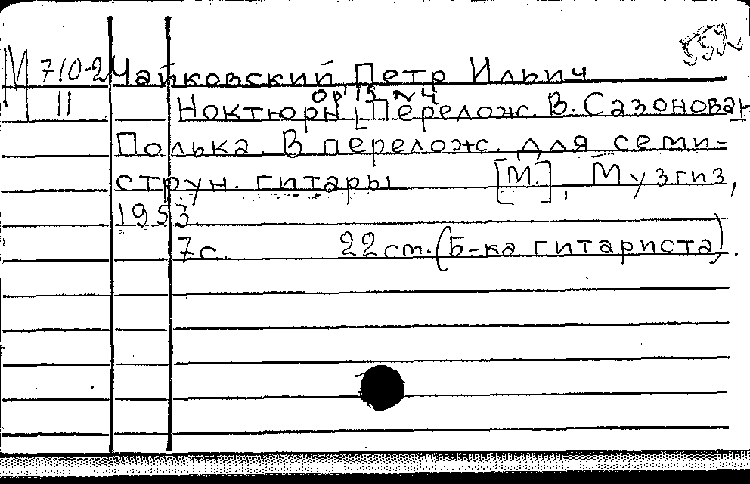 552
М 710-2 Чайковский Петр Ильич
11 Ноктюрн ор 19 № 4 [Перелож. В. Сазонова и
Полька. В перелож. для семи-
струн. гитары [М.], Музгиз,
1953
7 с. 22 cm. (Б-ка гитариста).